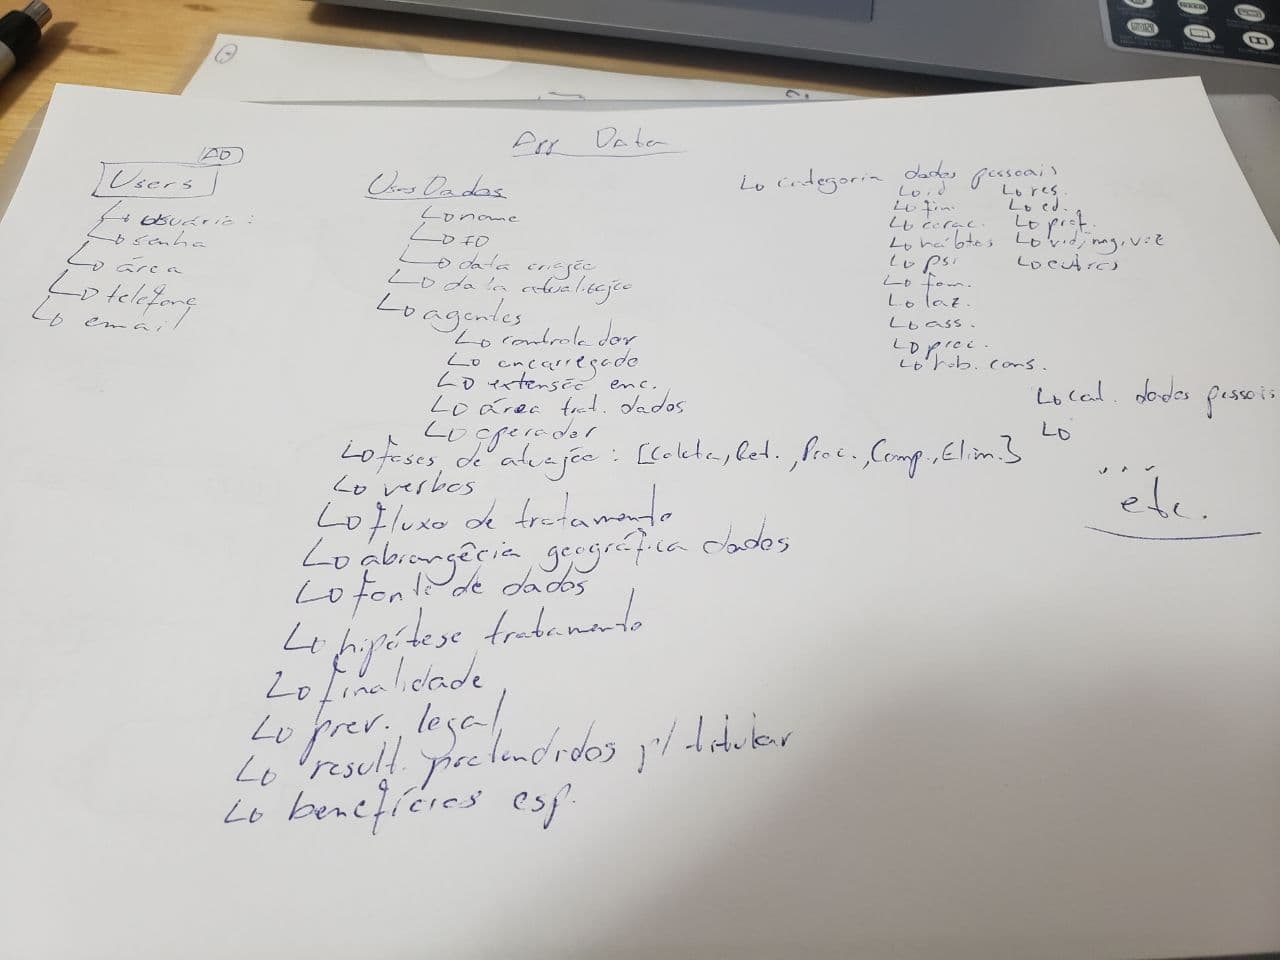 App Data
AD
Users
usuário:
senha
área
telefone
email
Uses Dados
nome
ID
data criação
data atualização
agentes
controlador
encarregado
extensão enc.
área trat. dados
operador
fases de atuação: [Coleta, Ret., Proc., Comp., Elim.}
verbos
fluxo de tratamento
abrangêcia geográfica dados
fonte de dados
hipótese tratamento
finalidade
prev. legal
result. pretendidos p/ titular
benefícios esp.
categoria dados pessoais
id
fin.
carac.
hábitos
psi
fam.
laz.
ass.
proc.
hab. cons.
res.
ed.
prof.
vid, img, voz
outros
cat. dados pessois
...
etc.